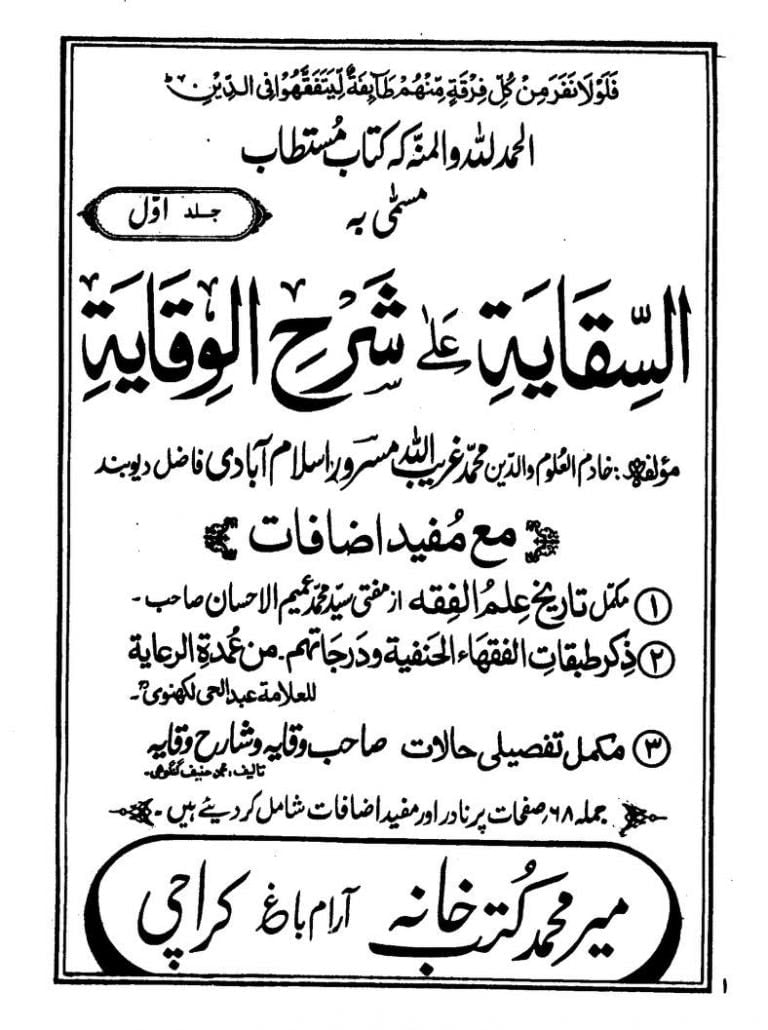 فَلَوْلَا نَفَرَ مِنْ كُلِّ فِرْقَةٍ مِّنْهُمْ طَآئِفَةٌ لِّيَتَفَقَّهُوْا فِى الدِّيْنِ ط
الحمد للہ والمنہ کہ کتاب مُستطاب
مسمّٰی بہ
جلد اوّل
السِّقَايَةِ عَلٰى شَرْحِ الْوِقَايَةِ
مؤلفہ: خادم العلوم والدّین محمّد غریب اللہ مسرور اسلام آبادی فاضل دیوبند
مع مُفید اضافات
① مکمّل تاریخ عِلمُ الفِقہ از مفتی سیّد محمّد عمیم الاحسان صاحب۔
② ذِکر طبقاتِ الفقھاء الحنفیة ودَرجاتھم۔ من عُمدۃِ الرعایة
للعلامة عبد الحی لکھنوی۔
③ مکمل تفصیلی حالات صاحب وقایہ و شارح وقایہ
تالیف: محمد حنیف گنگوہی۔
جملہ ٦٨؍ صفحات پر نادر اور مفید اضافات شامل کر دیئے ہیں۔
میر محمّد کُتب خانہ آرام باغ کراچی
١